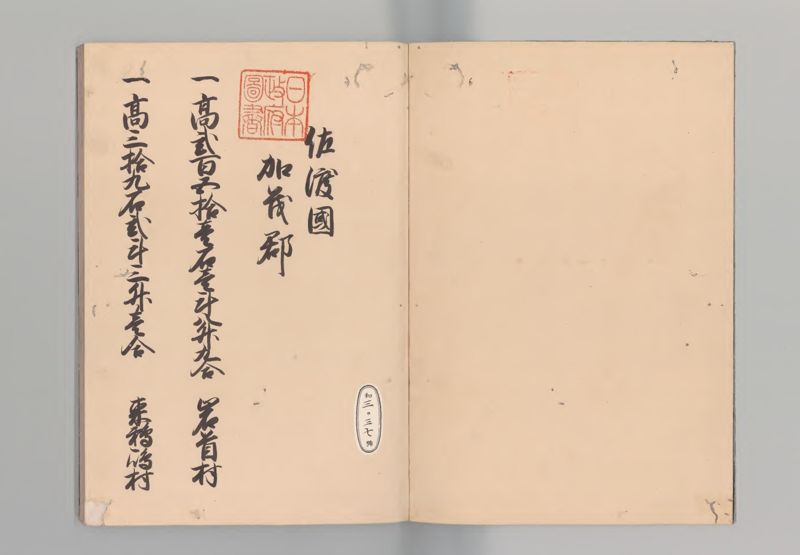 佐渡國
加茂郡
一高弐百五拾壱石壱斗八升九合 岩首村
一高三拾九石弐斗三升壱合 東鵜島村
日本
政府
圖書
和
三〇三七
號